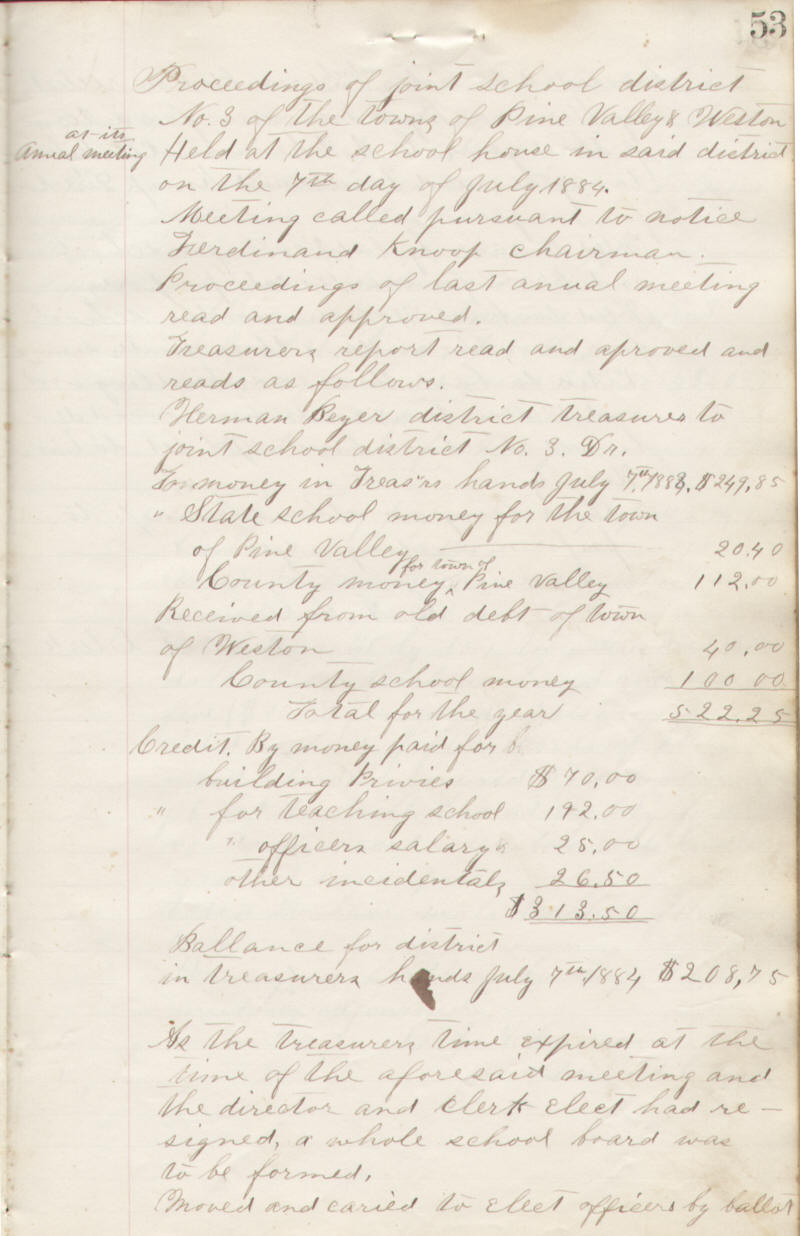 53
Proceedings of joint school district
No. 3 of the towns of Pine Valley & Weston
at its
Anual meeting
Held at the school house in said district
on the 7th day of July 1884.
Meeting called pursuant to notice
Ferdinand Knoop chairman.
Proceedings of last anual meeting
read and approved.
Treasurers report read and aproved and
reads as follows.
Herman Beyer district treasurer to
joint school district No. 3. Dr.
To money in Treas'rs hands July 7th 1883, $249,85
" State school money for the town
of Pine Valley 20.40
for town of
County money ^ Pine Valley 112.00
Received from old debt of town
of Weston 40.00
County school money 100 00
Total for the year 522.25
Credit. By money paid for
building Privies $70,00
" for teaching school 192.00
" officers salary 25,00
other incidentals 26.50
$313.50
Ballance for district
in treasurers hands July 7th 1884 $208,75
As the treasurers time expired at the
time of the aforesaid meeting and
the director and clerk elect had re-
signed, a whole school board was
to be formed.
Moved and caried to elect officers by ballot